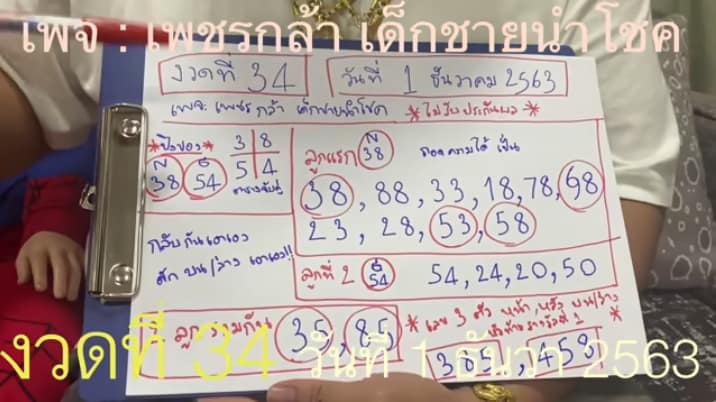 เพจ : เพชรกล้า เด็กชายนำโชค
งวดที่ 34
วันที่ 1 ธันวาคม 2563
เพจ: เพชรกล้า เด็กชายนำโชค *ไม่รับประกันผล*
*ปิงปอง*
N 38 6 54
3 8
5 4
ตารางลับคู่
ลูกแรก N 38 ถอดความได้ เป็น
38, 88, 33, 18, 78, 68
23, 28, 53, 58
กลับกันเอาเอง
ตัด บน/ล่าง เอาเอง!!
ลูกที่ 2 6 54 54, 24, 20, 50
ลูกรวมกัน 35, 85
* เลข 3 ตัว หน้า, หลัง บน/ล่าง
1 *
385, 458
งวดที่ 34 วันที่ 1 ธันวา 2563